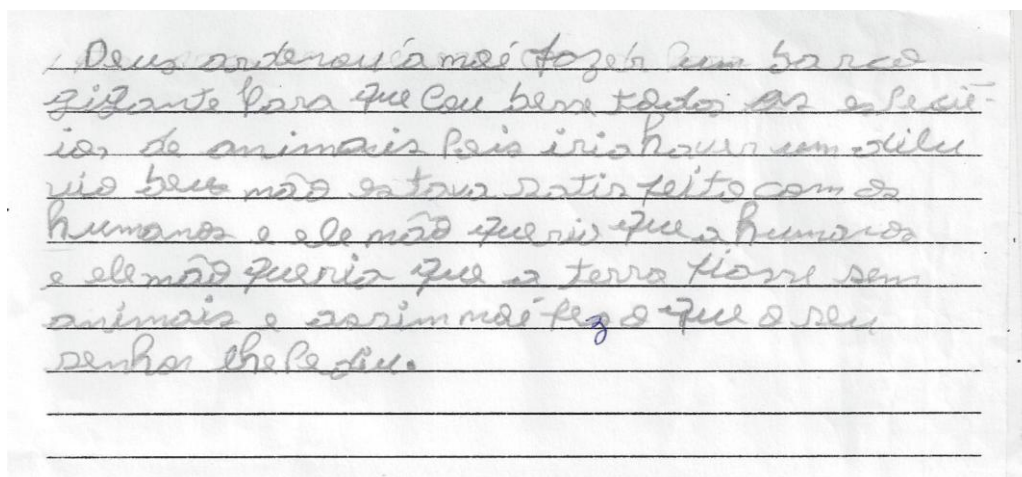 Deus ordenou á noé fazer um barco
gigante para que cou bese todos as espécié-
ios de animais pois iria haver um dilu
vio deus não estava satisfeito com os
humanos e ele não queria que a humanos
e ele não queria que a terra ficasse sem
animais e assim noé fez o que o seu
senhor lhe pediu.